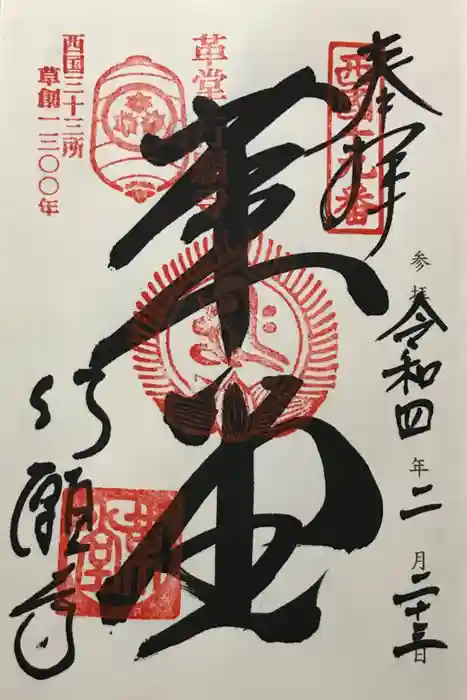 奉拝
西國十九番
参拝 令和四年二月二十三日
革堂
行願寺
革堂
西国三十三所
草創一三〇〇年
革堂